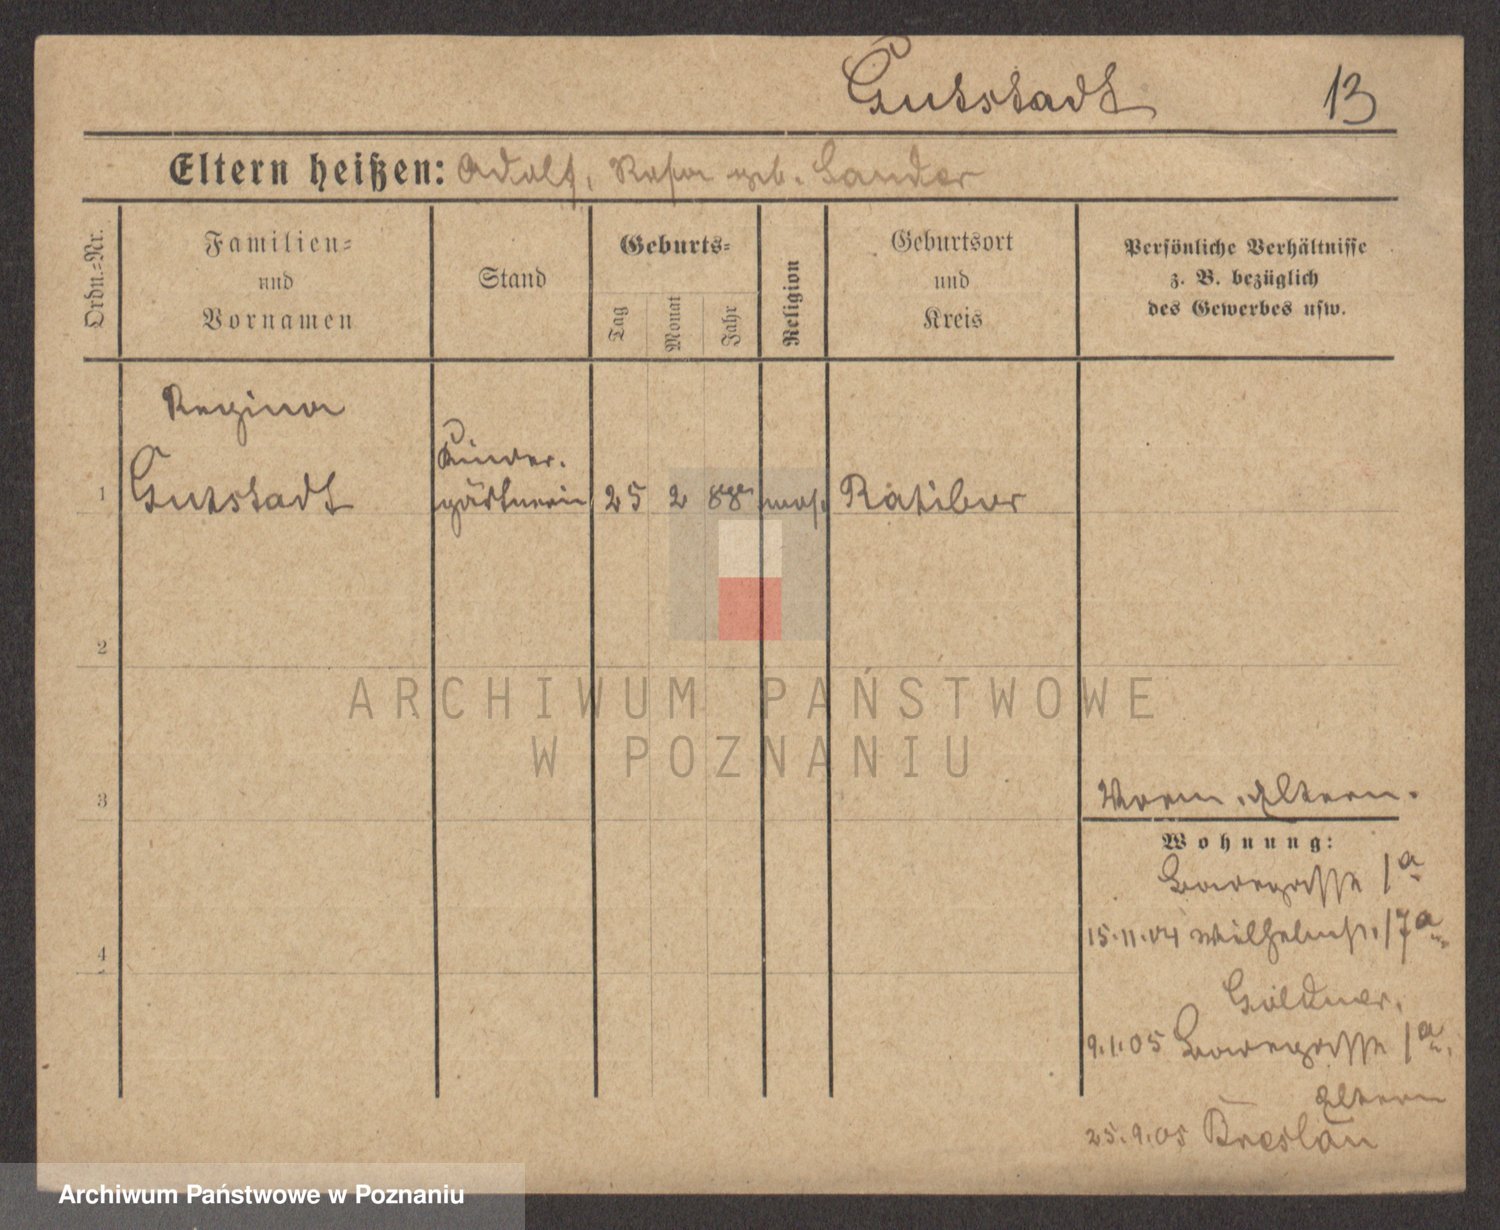 Gutstadt 13
Eltern heißen: Adolf, Rosa geb. Sander
Ordn.=Nr.
Familien=
und
Vornamen
Stand
Geburts=
Tag
Monat
Jahr
Religion
Geburtsort
und
Kreis
Persönliche Verhältnisse
z. B. bezüglich
des Gewerbes usw.
Regina
Kinder.
1 Gutstadt gärtnerin 25 2 88 mos. Ratibor
2
ARCHIWUM PAŃSTWOWE
W POZNANIU
3 Eltern.
Wohnung:
1a
15.11.04 Wilhelmstr. 17a
4
Goldner.
9.1.05 1a
Eltern
25.9.05 Breslau
Archiwum Państwowe w Poznaniu